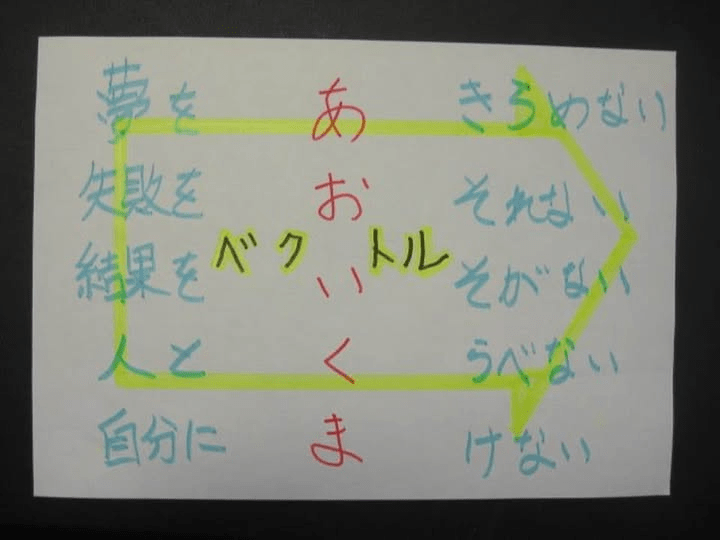 夢を あ きらめない
失敗を お それない
ベクトル
結果を い そがない
人と く らべない
自分に ま けない